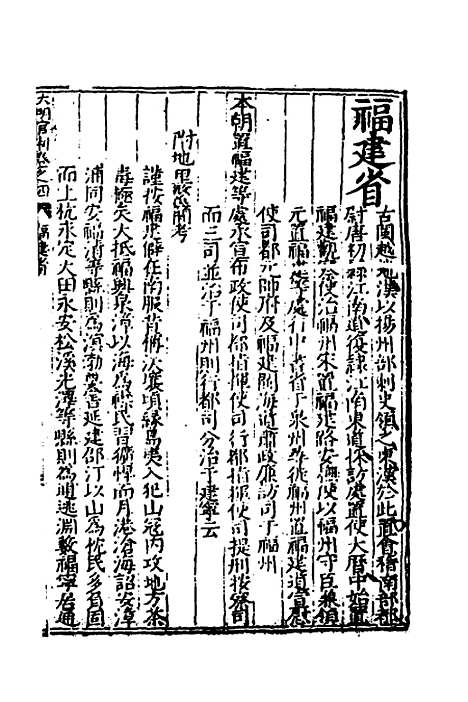 福建省
古閩越地漢以揚州部刺史領之東漢於此置會稽南部都
尉唐初經江南道復隸江南東道採訪處置使大曆中始置
福建觀察使治福州宋置福建路安撫使以福州守臣兼領
元置福建等處行中書省于泉州尋徙福州置福建道宣慰
使司都元帥府及福建閩海道肅政廉訪司于福州
本朝置福建等處承宣布政使司都指揮使司行都指揮使司提刑按察司
而三司並治于福州則行都司分治于建寧云
附地里考
謹按福建僻在南服昔稱次襄頃緣島夷入犯山寇內攻地方荼
毒極矣大抵福興泉漳以海為襟民習獷悍而月港滄海詔安漳
浦同安福清等縣則為溟渤要害延建邵汀以山為枕民多負固
而上杭永定大田永安松溪光澤等縣則為逋逃淵藪福寧若通
大明官制卷之四 福建省